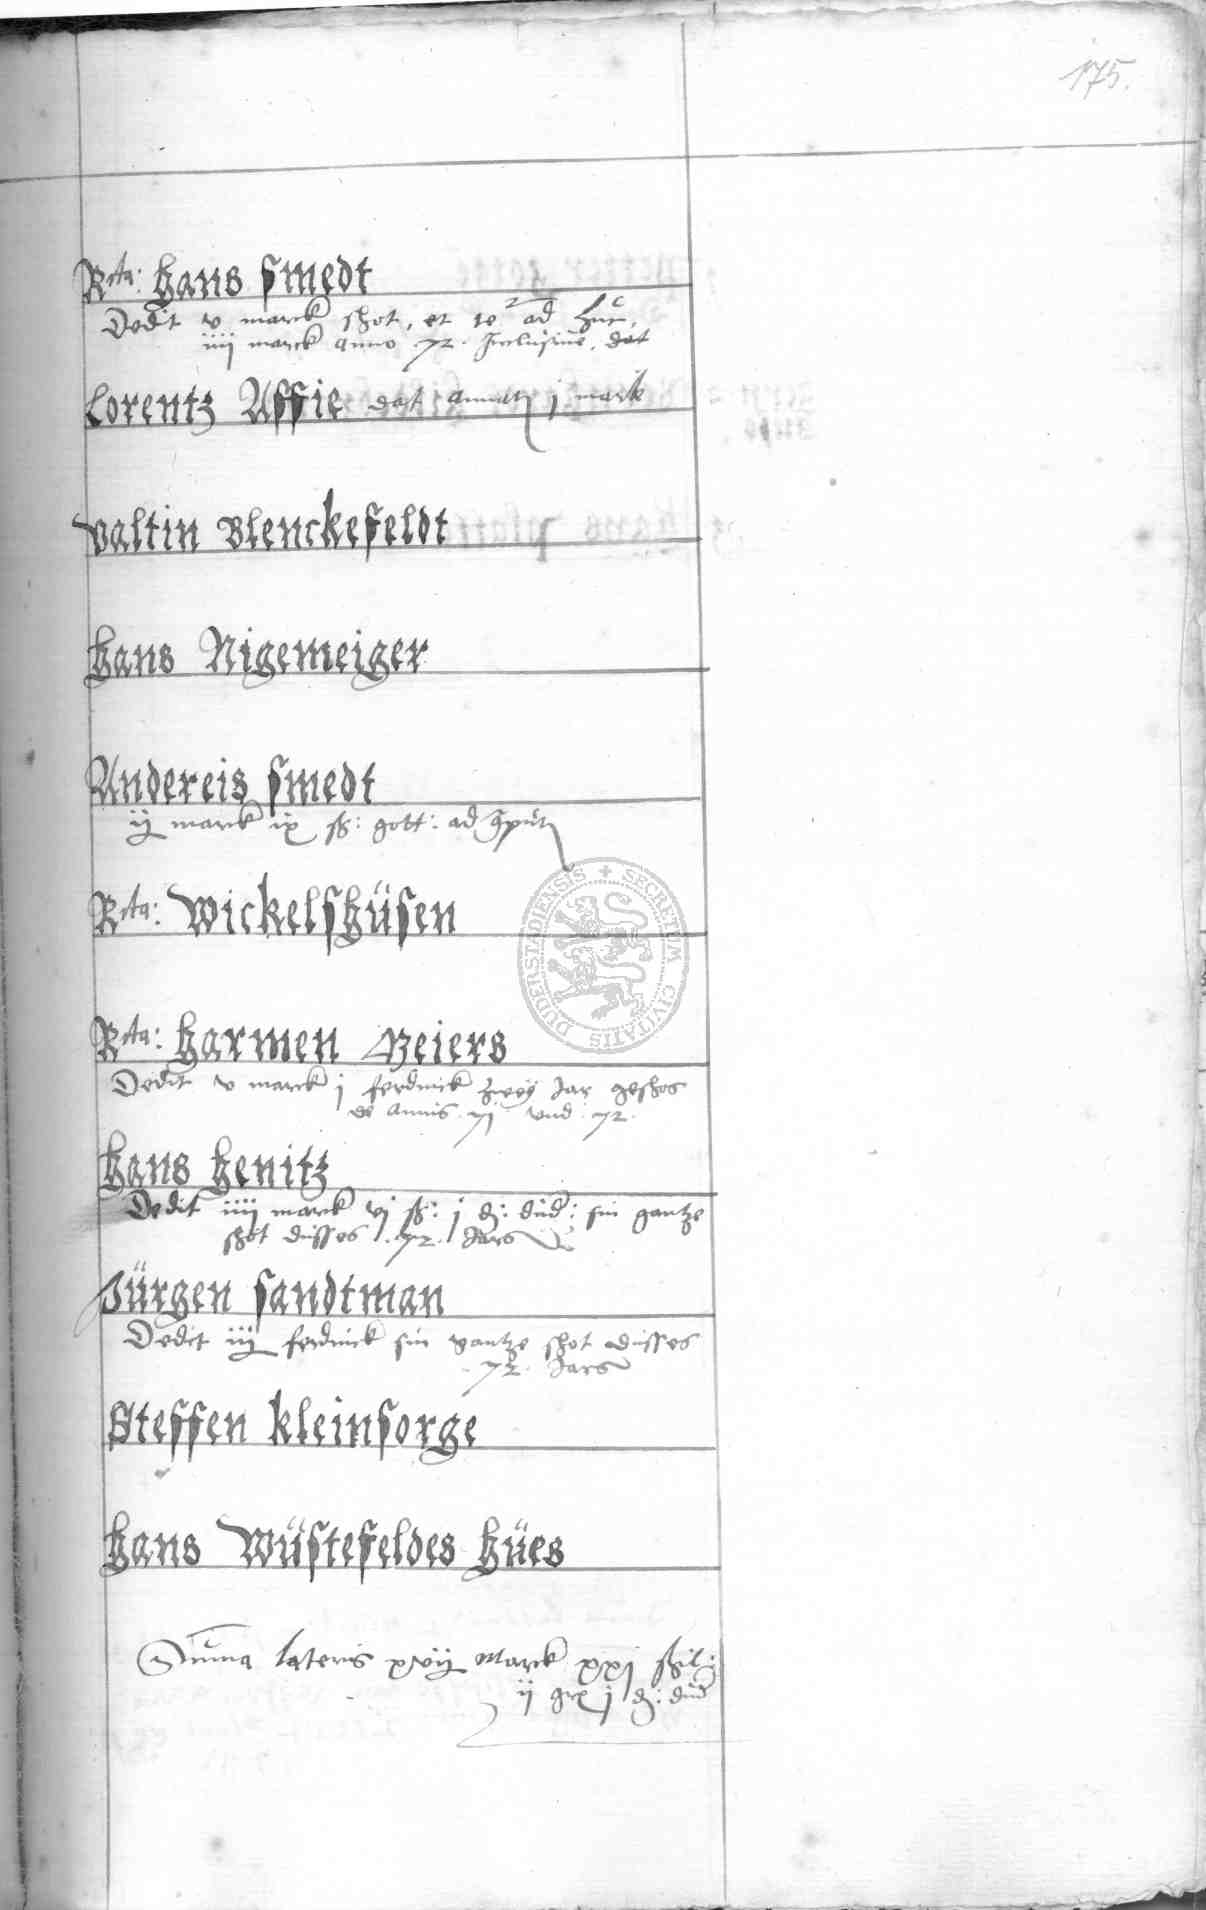 175.
Rcta: Hans Smedt
Dedit v marck schot, et te ad huc,
iiij marck anno 72. Inclusive. dat
Lorentz Affie dat annuatim j mark
Valtin Blenckefeldt
Hans Nigemeiger
Andereis Smedt
ij marck ix ß: gott: ad
Rcta: Wickelshüsen
Rcta: Harmen Beiers
Dedit v marck j ferdinck zwey Jar geschos
de annis. 71 vnd. 72.
Hans Henitz
Dedit iiij marck vj ß: j d: düd: sin gantze
schot düsses .72. Jars
Jürgen Sandtman
Dedit iij ferdinck sin gantze schot düsses
.72. Jars
Steffen Kleinsorge
Hans Wüstefeldes Hües
Suma lateris xvij Marck xxj schil:
ij gr j d: düd
SECRETUM CIVITATIS DUDERSTADIENSIS